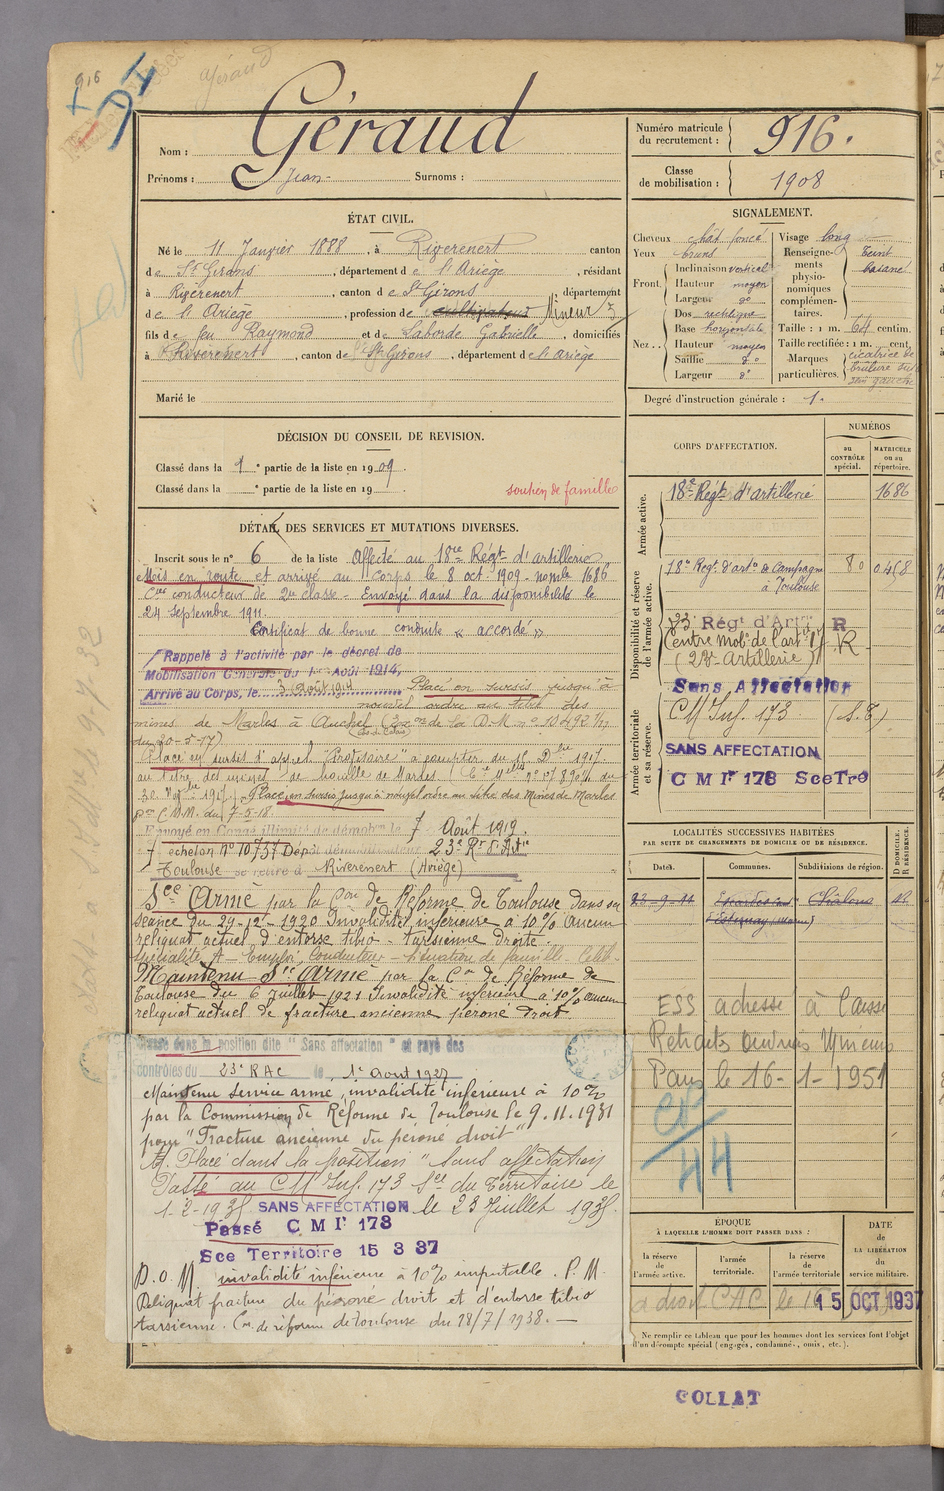 916
Géraud
Nom : Géraud
Prénoms : Jean Surnoms :
Numéro matricule du recrutement : 916.
Classe de mobilisation : 1908
ÉTAT CIVIL.
Né le 11 Janvier 1888, à Riverenert canton
de St Girons, département de l'Ariège, résidant
à Riverenert, canton de St Girons, département
de l'Ariège, profession de cultivateur Mineur
fils de feu Raymond et de Laborde Gabrielle, domiciliés
à Riverenert, canton de St Girons, département de l'Ariège
Marié le
SIGNALEMENT.
Cheveux chât foncé
Yeux bruns
Front. Inclinaison verticale
Hauteur moyen
Largeur do
Nez Dos rectiligne
Base horizontale
Hauteur moyen
Saillie do
Largeur do
Visage long
Renseignements physionomiques complémentaires. Teint basané
Taille : 1 m. 64 centim.
Taille rectifiée : 1 m. cent.
Marques particulières. cicatrice de brûlure sur sein gauche
Degré d'instruction générale : 1.
DÉCISION DU CONSEIL DE REVISION.
Classé dans la 1e partie de la liste en 1909.
Classé dans la e partie de la liste en 19
soutien de famille
DÉTAIL DES SERVICES ET MUTATIONS DIVERSES.
Inscrit sous le n° 6 de la liste Affecté au 18me Régt d'artillerie
Mois en route et arrivé au Corps le 8 oct. 1909 - nomble 1686
Cer conducteur de 2me classe - Envoyé dans la disponibilité le
24 Septembre 1911.
Certificat de bonne conduite « accordé »
Rappelé à l'activité par le décret de
Mobilisation Générale du 1er Août 1914,
Arrivé au Corps, le 3 Août 1914 Placé en sursis jusqu'à
nouvel ordre au titre des
mines de Marles à Auchel (Pas de Calais) de la D.M. n° 10492
du 30-5-17)
Placé en sursis d'appel à compter du 15 Dbre 1917
au titre des mines de houille de Marles
Placé en sursis jusqu'à nouvel ordre au titre des Mines de Marles
D.M. du 7-5-18.
Envoyé en Congé illimité de démobon le 7 Août 1919.
7e échelon N° 10737 Dépôt démobilisateur 23e Rt d'Artie
Toulouse se retire à Riverenert (Ariège)
Sce Armé par la Con de Réforme de Toulouse dans sa
séance du 29-12-1920 Invalidité inférieure à 10% Aucun
reliquat actuel d'entorse tibio-tarsienne droite.
Spécialité A - Emploi, Conducteur - Situation de famille - Célib -
Maintenu Sce Armé par la Con de Réforme de
Toulouse du 6 Juillet 1921 Invalidité inférieure à 10% aucun
reliquat actuel de fracture ancienne péroné droit
Classé dans la position dite " Sans affectation " et rayé des
contrôles du 23e RAC le 1er Août 1929
Maintenu service armé, invalidité inférieure à 10%
par la Commission de Réforme de Toulouse le 9.11.1931
pour "Fracture ancienne du péroné droit"
Placé dans la position "Sans affectation
Passé au CM Inf. 173 Sce du Territoire le
1-2-1935 SANS AFFECTATION le 23 Juillet 1935
Passé C M Ir 173
Sce Territoire 15 3 37
P.O.M. invalidité inférieure à 10% imputable. P.M.
Reliquat fracture du péroné droit et d'entorse tibio
tarsienne. Con de réforme de Toulouse du 28/7/1938. —
CORPS D'AFFECTATION.
NUMÉROS
au CONTRÔLE spécial.
MATRICULE ou au répertoire.
Armée active.
18e Régt d'artillerie 1686
Disponibilité et réserve de l'armée active.
18e Régt d'artie de Campagne 80 0458
à Toulouse
23 Régt d'Artie R
(entre mobn de l'art R
(28e Artillerie)
Sans Affectation
Armée territoriale et sa réserve.
CM Inf. 173 (S.T.)
SANS AFFECTATION
C M Ir 173 Sce Tre
LOCALITÉS SUCCESSIVES HABITÉES
PAR SUITE DE CHANGEMENTS DE DOMICILE OU DE RÉSIDENCE.
Dates. Communes. Subdivisions de région. D DOMICILE. R RÉSIDENCE.
22-9-11 Châlons R
(Marne)
ESS adresse à Caisse
Retraite ouvriers Mineurs
Paris le 16-1-1951
44
ÉPOQUE
À LAQUELLE L'HOMME DOIT PASSER DANS :
la réserve de l'armée active.
l'armée territoriale.
la réserve de l'armée territoriale
DATE de LA LIBÉRATION du service militaire.
a droit CAC le 15 OCT 1937
Ne remplir ce tableau que pour les hommes dont les services font l'objet
d'un décompte spécial (engagés, condamnés, omis, etc.).
COLLAT